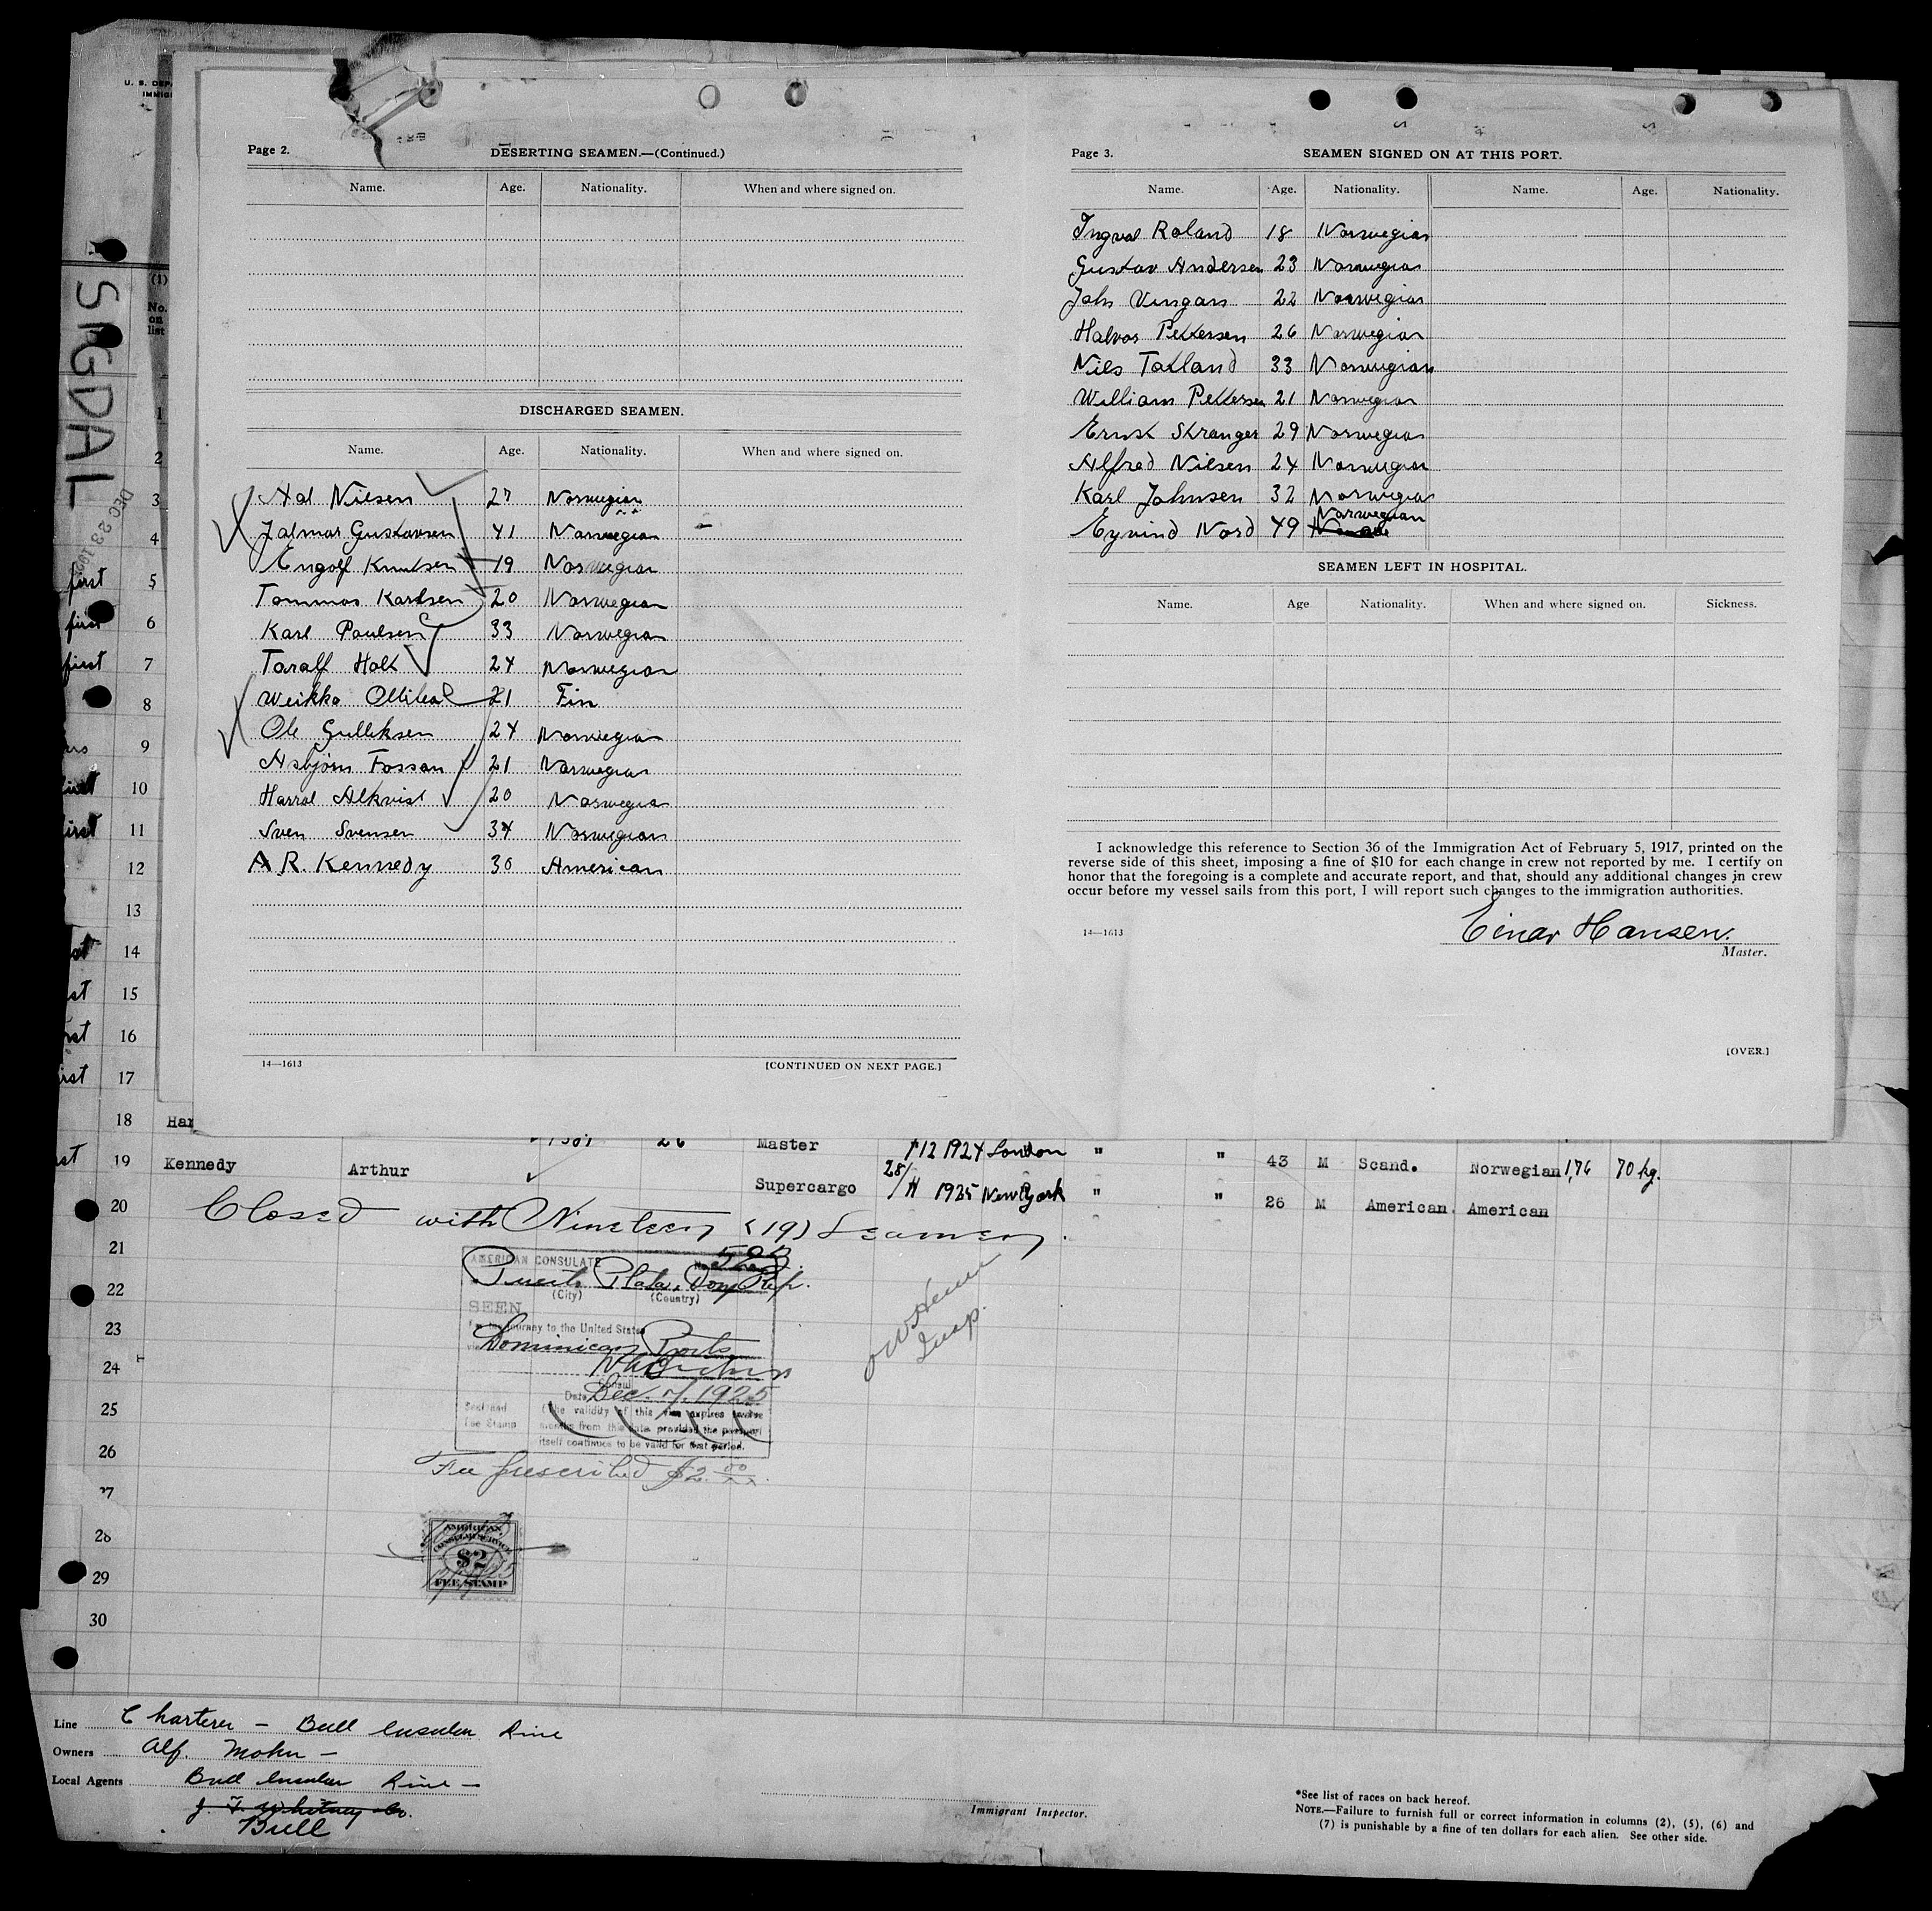 U. S. DEP
IMMIG
SIGDAL
DEC 23 192
(1)
No.
on
list
Page 2.
DESERTING SEAMEN.—(Continued.)
Name. Age. Nationality. When and where signed on.
DISCHARGED SEAMEN.
Name. Age. Nationality. When and where signed on.
Nilsen 27 Norwegian
Jalmar Gustavsen 41 Norwegian
Engolf Knutsen 19 Norwegian
Tommas Karlsen 20 Norwegian
Karl Paulsen 33 Norwegian
Taralf Holt 24 Norwegian
Weikko 21 Fin
Ole Gulliksen 24 Norwegian
Asbjörn Fossan 21 Norwegian
Harral Alkvist 20 Norwegian
Sven Svensen 34 Norwegian
A R. Kennedy 30 American
14—1613
[CONTINUED ON NEXT PAGE.]
Page 3.
SEAMEN SIGNED ON AT THIS PORT.
Name. Age. Nationality. Name. Age. Nationality.
Ingval Roland 18 Norwegian
Gustav Andersen 23 Norwegian
John Vingan 22 Norwegian
Halvor Pettersen 26 Norwegian
Nils Tatland 33 Norwegian
William Pettersen 21 Norwegian
Ernst Stranger 29 Norwegian
Alfred Nilsen 24 Norwegian
Karl Johnsen 32 Norwegian
Eyvind Nord 49 Norwegian
SEAMEN LEFT IN HOSPITAL.
Name. Age Nationality. When and where signed on. Sickness.
I acknowledge this reference to Section 36 of the Immigration Act of February 5, 1917, printed on the
reverse side of this sheet, imposing a fine of $10 for each change in crew not reported by me. I certify on
honor that the foregoing is a complete and accurate report, and that, should any additional changes in crew
occur before my vessel sails from this port, I will report such changes to the immigration authorities.
14—1613
Einar Hansen.
Master.
[OVER.]
1
2
3
4
first 5
first 6
first 7
8
9
10
11
12
13
14
15
16
17
18 Har
Master 1924 London " " 43 M Scand. Norwegian 1,76 70 kg.
19 Kennedy Arthur
Supercargo 28/ 1925 New York " " 26 M American. American
20 Closed with Nineteen (19) Seamen.
21
22
23
24
25
26
27
28
29
30
AMERICAN CONSULATE
Puerto Plata, Dom Rep.
(City) (Country)
SEEN
For the journey to the United States
via Dominican Ports
Consul
Date Dec. 7, 1925
Seal and
Fee Stamp
(The validity of this visa expires twelve
months from this date provided the passport
itself continues to be valid for that period.
Fee prescribed $2.00
Insp.
AMERICAN
CONSULAR SERVICE
$2
FEE STAMP
Line Charterer — Bull Insular Line
Owners Alf. Mohn —
Local Agents Bull Insular Line —
J. F. Whitney Co.
Bull
Immigrant Inspector.
*See list of races on back hereof.
NOTE.—Failure to furnish full or correct information in columns (2), (5), (6) and
(7) is punishable by a fine of ten dollars for each alien. See other side.